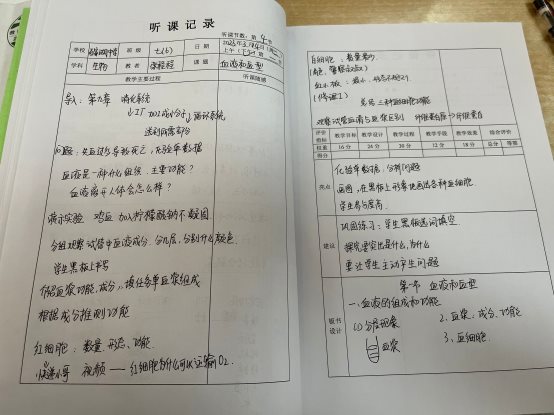 听课记录
听课节数：第4节
学校 班级 七(6) 日期 2025年3月4日
上午(下午)第 节
学科 生物 教者 课题 血液和血型
教学主要过程 听课随感
导入：第九章 消化系统
↓工厂 加工成小分子↓循环系统
送到所需部分
问题：失血过多导致死亡，化验单数据
血液是一种什么组织，主要功能？
血液离开人体会怎么样？
演示实验 鸡血加入柠檬酸钠不凝固
分组观察试管中血液成分，分几层，分别什么颜色.
学生黑板上书写
介绍血浆功能，成分，
根据成分推测功能
红细胞：数量，形态，功能
快递小哥 视频——红细胞为什么可以运输O2.
白细胞：数量最少.
血小板：最小，形态不规则
总结三种血细胞功能
观察试管血清与血浆区别 纤维蛋白原→纤维蛋白
评价指标 教学目标 教学设计 教学过程 教学手段 教学效果 综合评价
权重 16分 24分 30分 12分 18分 总分 等级
得分
亮点
化验单数据，分析问题
画图，在黑板上形象地画出各种血细胞.
学生参与度高.
建议
巩固练习：学生黑板选词填空.
探究要突出是什么，为什么
要让学生主动产生问题
板书设计
第一节 血液和血型
一、血液的组成和功能
(1)分层现象 2、血浆：成分、功能
血浆 3、血细胞.